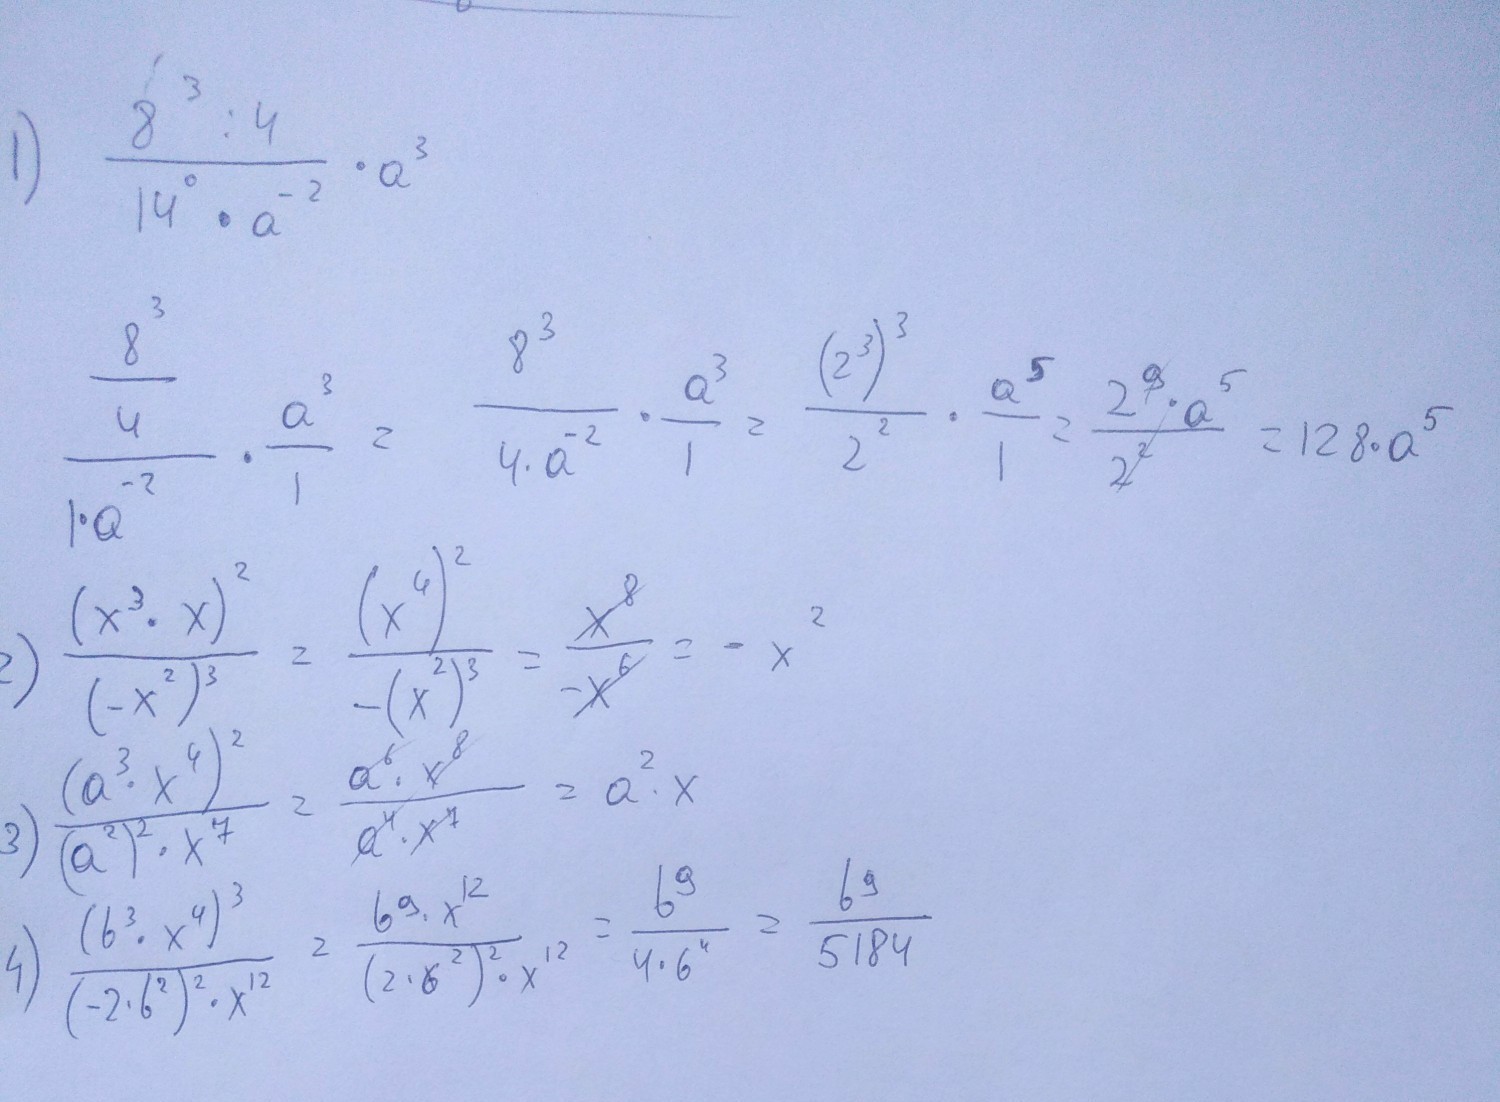 1) \frac{8^3 : 4}{14^0 • a^{-2}} • a^3
\frac{\frac{8^3}{4}}{1•a^{-2}} • \frac{a^3}{1} = \frac{8^3}{4•a^{-2}} • \frac{a^3}{1} = \frac{(2^3)^3}{2^2} • \frac{a^5}{1} = \frac{2^9•a^5}{2^2} = 128•a^5
2) \frac{(x^3•x)^2}{(-x^2)^3} = \frac{(x^4)^2}{-(x^2)^3} = \frac{x^8}{-x^6} = -x^2
3) \frac{(a^3•x^4)^2}{(a^2)^2•x^7} = \frac{a^6•x^8}{a^4•x^7} = a^2•x
4) \frac{(6^3•x^4)^3}{(-2•6^2)^2•x^{12}} = \frac{6^9•x^{12}}{(2•6^2)^2•x^{12}} = \frac{6^9}{4•6^4} = \frac{6^9}{5184}